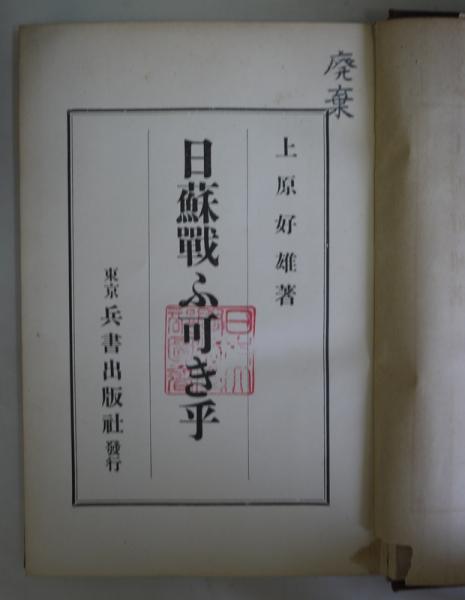 廃棄
上原好雄著
日蘇戰ふ可き乎
東京 兵書出版社 發行